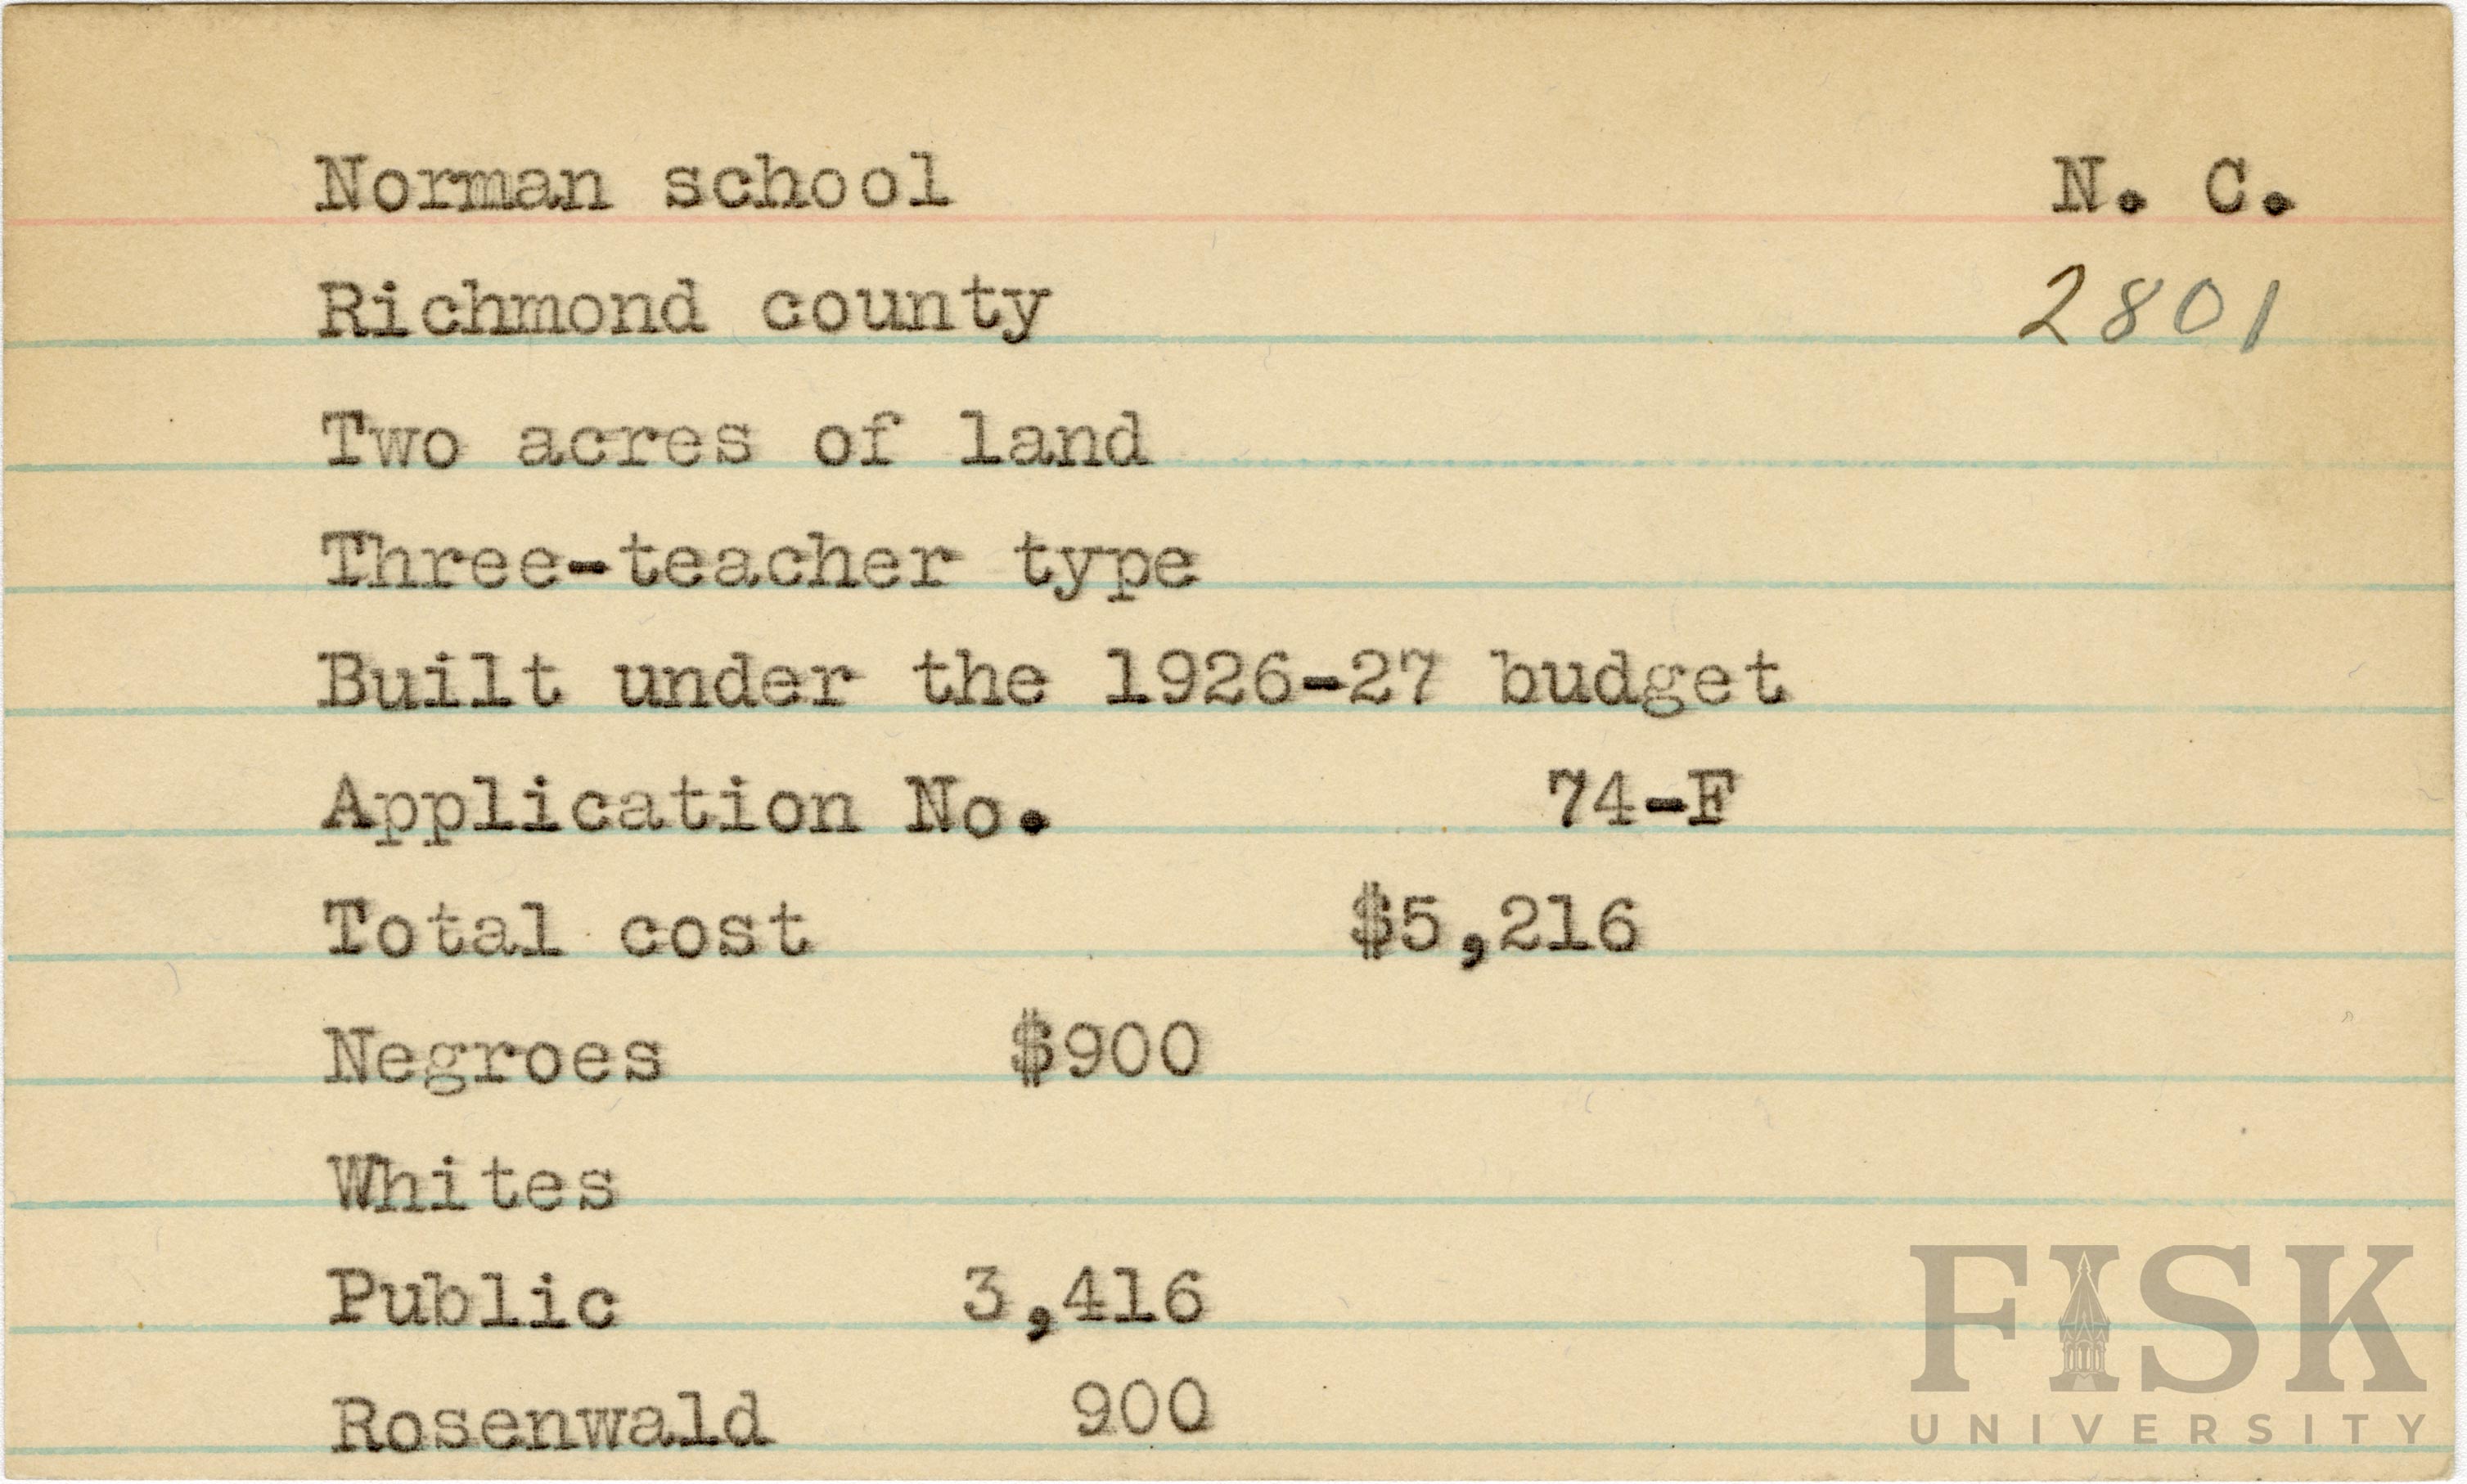 Norman school N. C.
Richmond county 2801
Two acres of land
Three-teacher type
Built under the 1926-27 budget
Application No. 74-F
Total cost $5,216
Negroes $900
Whites
Public 3,416
Rosenwald 900
FISK
UNIVERSITY